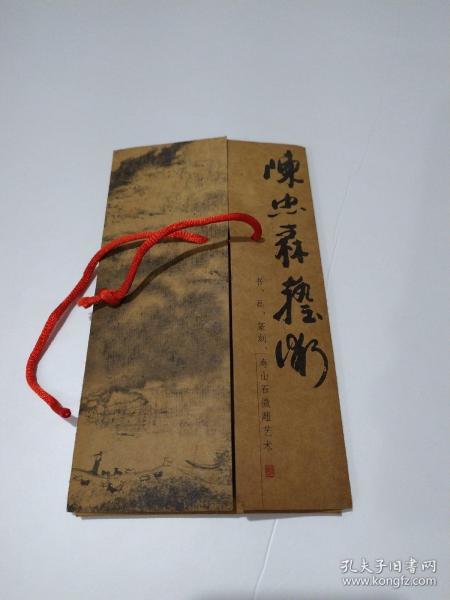 陳忠森藝術
书、画、篆刻、寿山石微雕艺术
孔夫子旧书网
www.kongfz.com